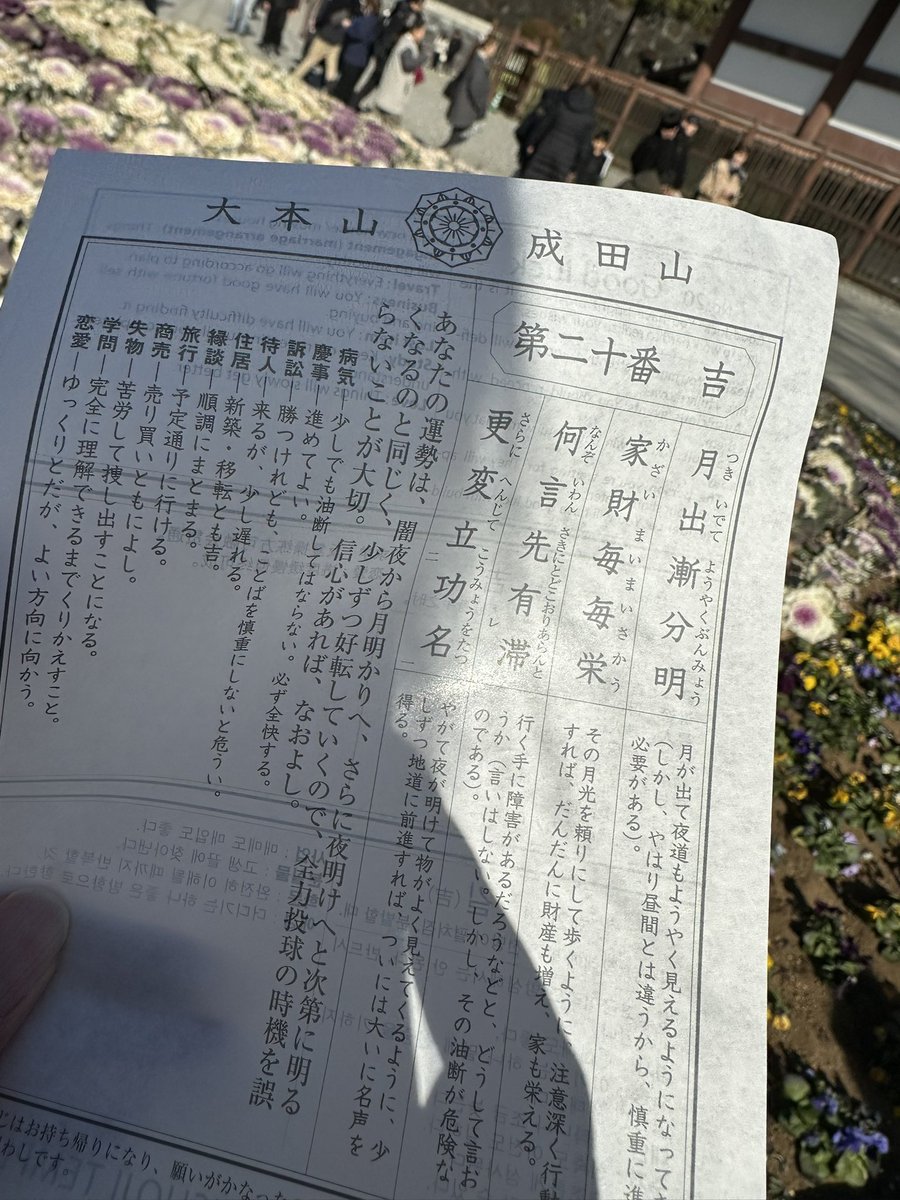 大本山 成田山
第二十番 吉
月出漸分明
つき いでて ようやくぶんみょう
月が出て夜道もようやく見えるようになってき
(しかし、やはり昼間とは違うから、慎重に進
必要がある)。
家財毎毎栄
かざい まいまい さかう
その月光を頼りにして歩くように、注意深く行動
すれば、だんだんに財産も増え、家も栄える。
何言先有滞
なんぞ いわん さきにとどこおりあらんと
レ
行く手に障害があるだろうなどと、どうして言お
うか(言いはしない。しかし、その油断が危険な
のである)。
更変立功名
さらに へんじて こうみょうをたつ
二 一
やがて夜が明けて物がよく見えてくるように、少
しずつ地道に前進すれば、ついには大いに名声を
得る。
あなたの運勢は、闇夜から月明かりへ、さらに夜明けへと次第に明る
くなるのと同じく、少しずつ好転していくので、全力投球の時機を誤
らないことが大切。信心があれば、なおよし。
病気―少しでも油断してはならない。必ず全快する。
慶事―進めてよい。
訴訟―勝つけれども、ことばを慎重にしないと危うい。
待人―来るが、少し遅れる。
住居―新築・移転とも吉。
縁談―順調にまとまる。
旅行―予定通りに行ける。
商売―売り買いともによし。
失物―苦労して捜し出すことになる。
学問―完全に理解できるまでくりかえすこと。
恋愛―ゆっくりとだが、よい方向に向かう。
じはお持ち帰りになり、願いがかなった
わしです。